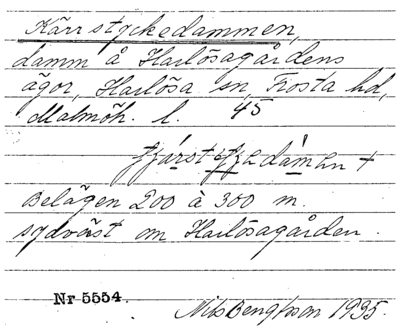 Kärrstyckedammen,
damm å Harlösagårdens
ägor, Harlösa sn, Frosta hd,
Malmöh. l. 45
Belägen 200 à 300 m.
sydväst om Harlösagården.
Nr 5554. Nils Bengtsson 1935.